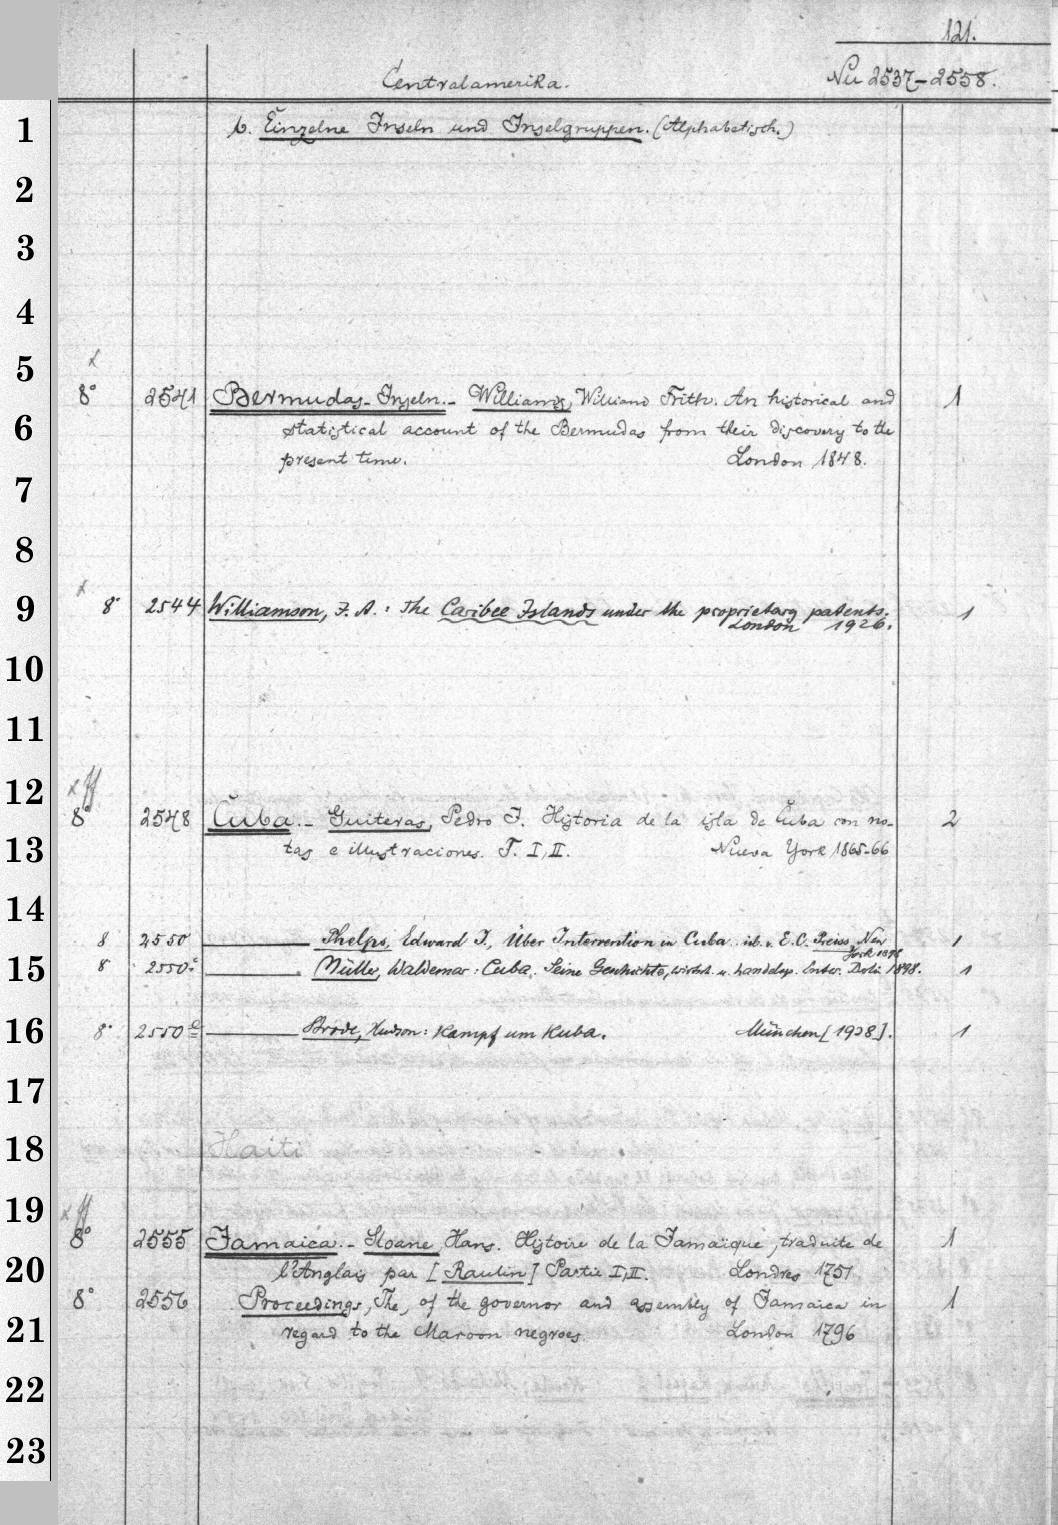 121.
Centralamerika. Nu 2537-2558.
1 b. Einzelne Inseln und Inselgruppen. (Alphabetisch.)
2
3
4
5
8° 2541 Bermudas-Inseln.- Williams, William Frith. An historical and 1
6 statistical account of the Bermudas from their discovery to the
present time. London 1848.
7
8
9 8° 2544 Williamson, J. A.: The Caribee Islands under the proprietary patents. 1
London 1926.
10
11
12
8° 2548 Cuba.- Guiteras, Pedro J. Historia de la isla de Cuba con no- 2
13 tas e illustraciones. T. I, II. Nueva York 1865-66
14
8 2550 Phelps, Edward J., Über Intervention in Cuba. üb. v. E. C. Preiss New 1
York 1898
15 8° 2550c Müller, Waldemar: Cuba. Seine Geschichte, wirtsch. u. handelsp. Entw. 1898. 1
16 8° 2550e Brode, Hudson: Kampf um Kuba. München [1938]. 1
17
18 Haiti
19
8° 2555 Jamaica.- Sloane, Hans. Histoire de la Jamaïque, traduite de 1
20 l'Anglais par [Raulin] Partie I, II. Londres 1751
8° 2556 Proceedings, The, of the governor and assembly of Jamaica in 1
21 regard to the Maroon negroes London 1796
22
23